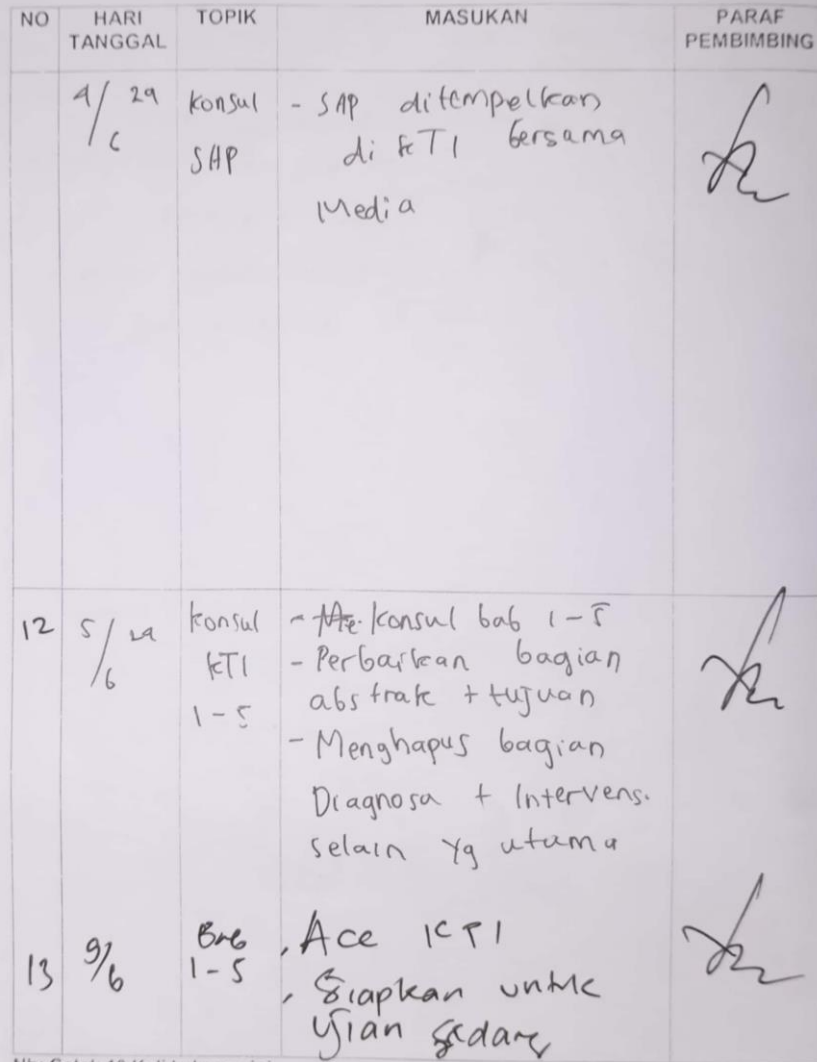 NO HARI TANGGAL TOPIK MASUKAN PARAF PEMBIMBING
4/6 24 konsul SAP
- SAP ditempelkan
di KTI bersama
Media
12 5/6 24 konsul KTI 1-5
- konsul bab 1-5
- Perbaikan bagian
abstrak + tujuan
- Menghapus bagian
Diagnosa + Intervensi
selain yg utama
13 9/6 Bab 1-5
, Acc KTI
, Siapkan untuk
Ujian sidang